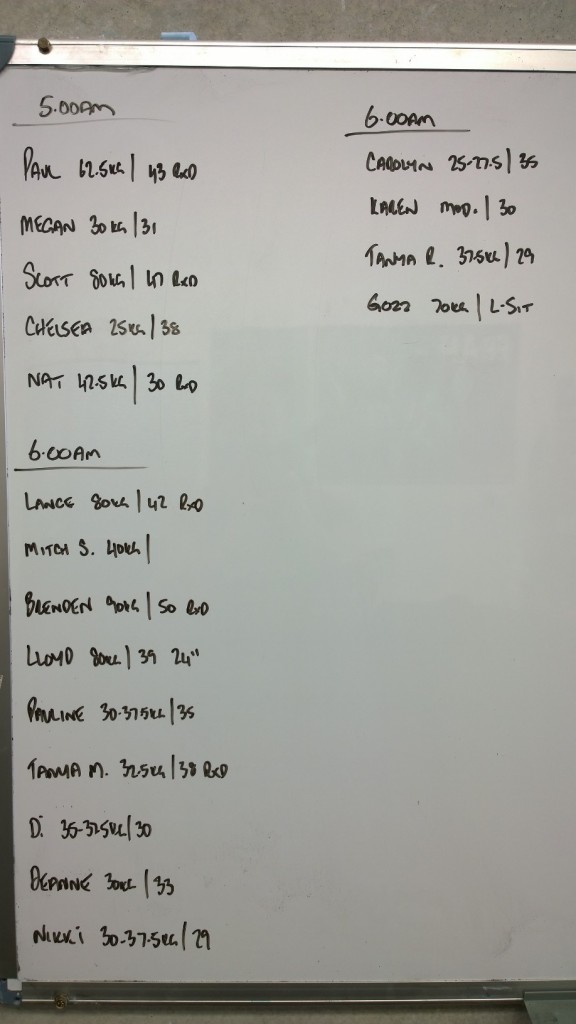 5.00AM
PAUL 62.5KG | 43 RXD
MEGAN 30KG | 31
SCOTT 80KG | 47 RXD
CHELSEA 25KG | 38
NAT 42.5KG | 30 RXD
6.00AM
LANCE 80KG | 42 RXD
MITCH S. 40KG |
BRENDEN 90KG | 50 RXD
LLOYD 80KG | 39 24"
PAULINE 30-37.5KG | 35
TANYA M. 32.5KG | 38 RXD
Di 35-37.5KG | 30
DEANNE 30KG | 33
NIKKi 30-37.5KG | 29
6.00AM
CAROLYN 25-27.5 | 35
KAREN MOD. | 30
TANYA R. 37.5KG | 29
GOZZ 70KG | L-SIT